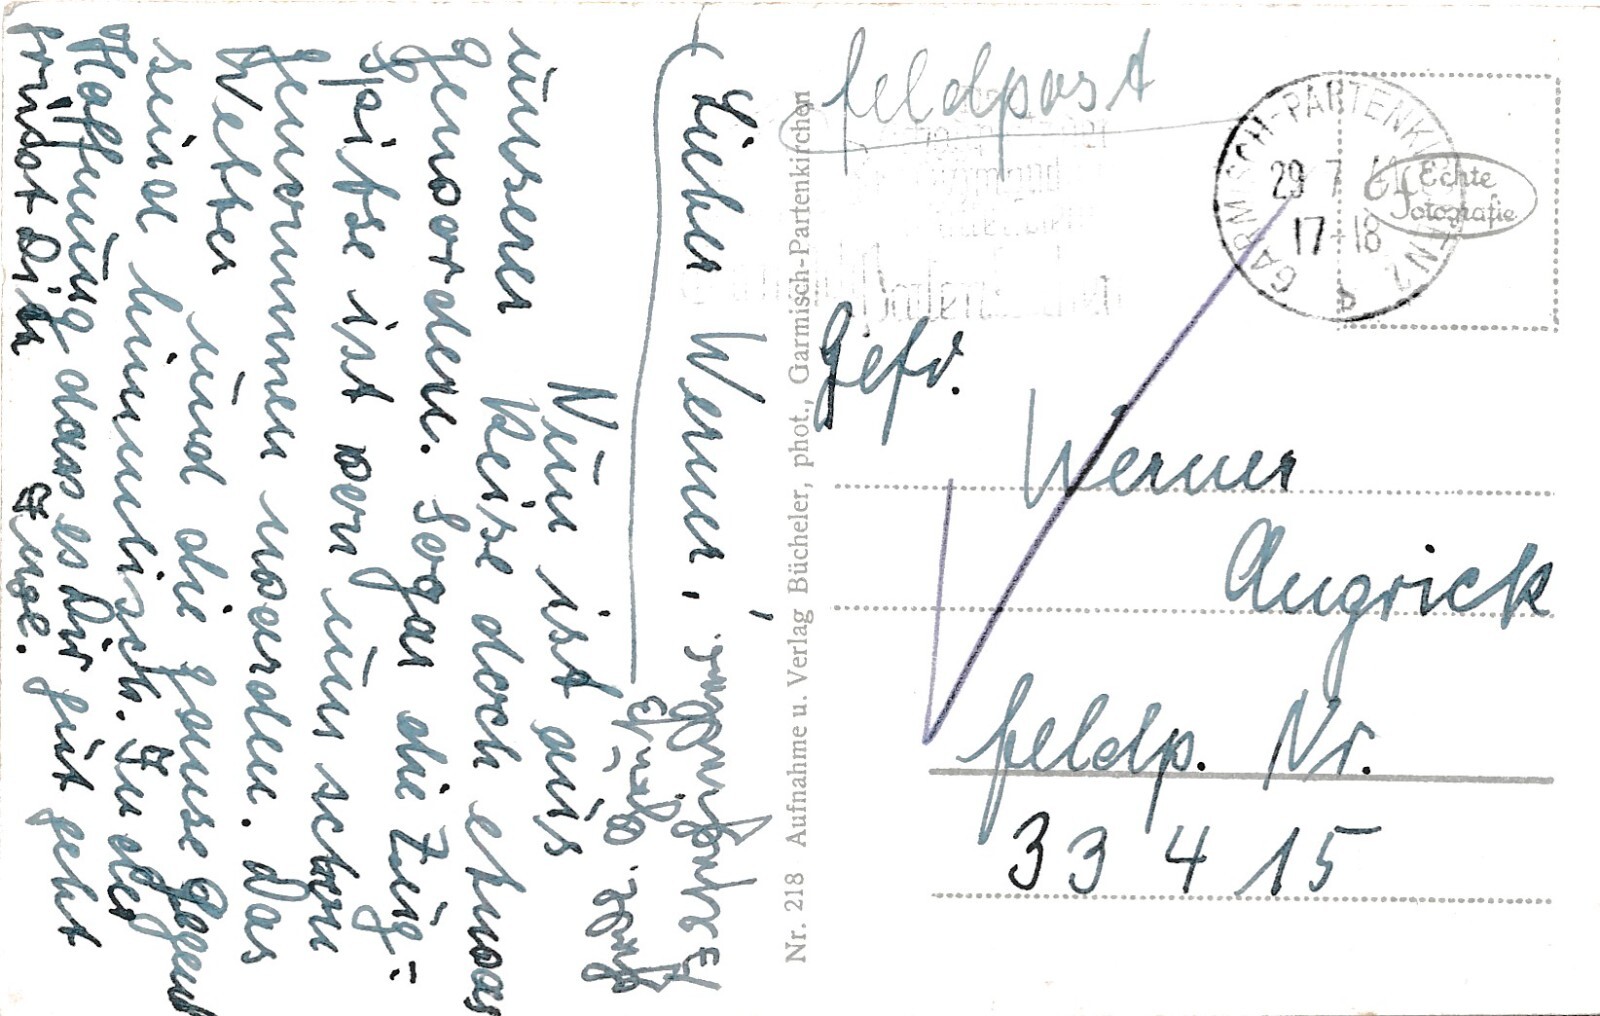 Feldpost
GARMISCH-PARTENKIRCHEN
29 7
17-18
Echte
Fotografie
Gefr.
Werner
Augrick
Feldp. Nr.
33 4 15
Nr. 218 Aufnahme u. Verlag Bücheler, phot., Garmisch-Partenkirchen
Lieber Werner,
Nun ist aus
unserer Reise doch etwas
geworden. Sogar die Zug-
spitze ist von uns schon
genommen worden. Das
Wetter und die ganze Gegend
sind himmlisch. In der
Hoffnung dass es Dir gut geht
grüßt Dich Inge.